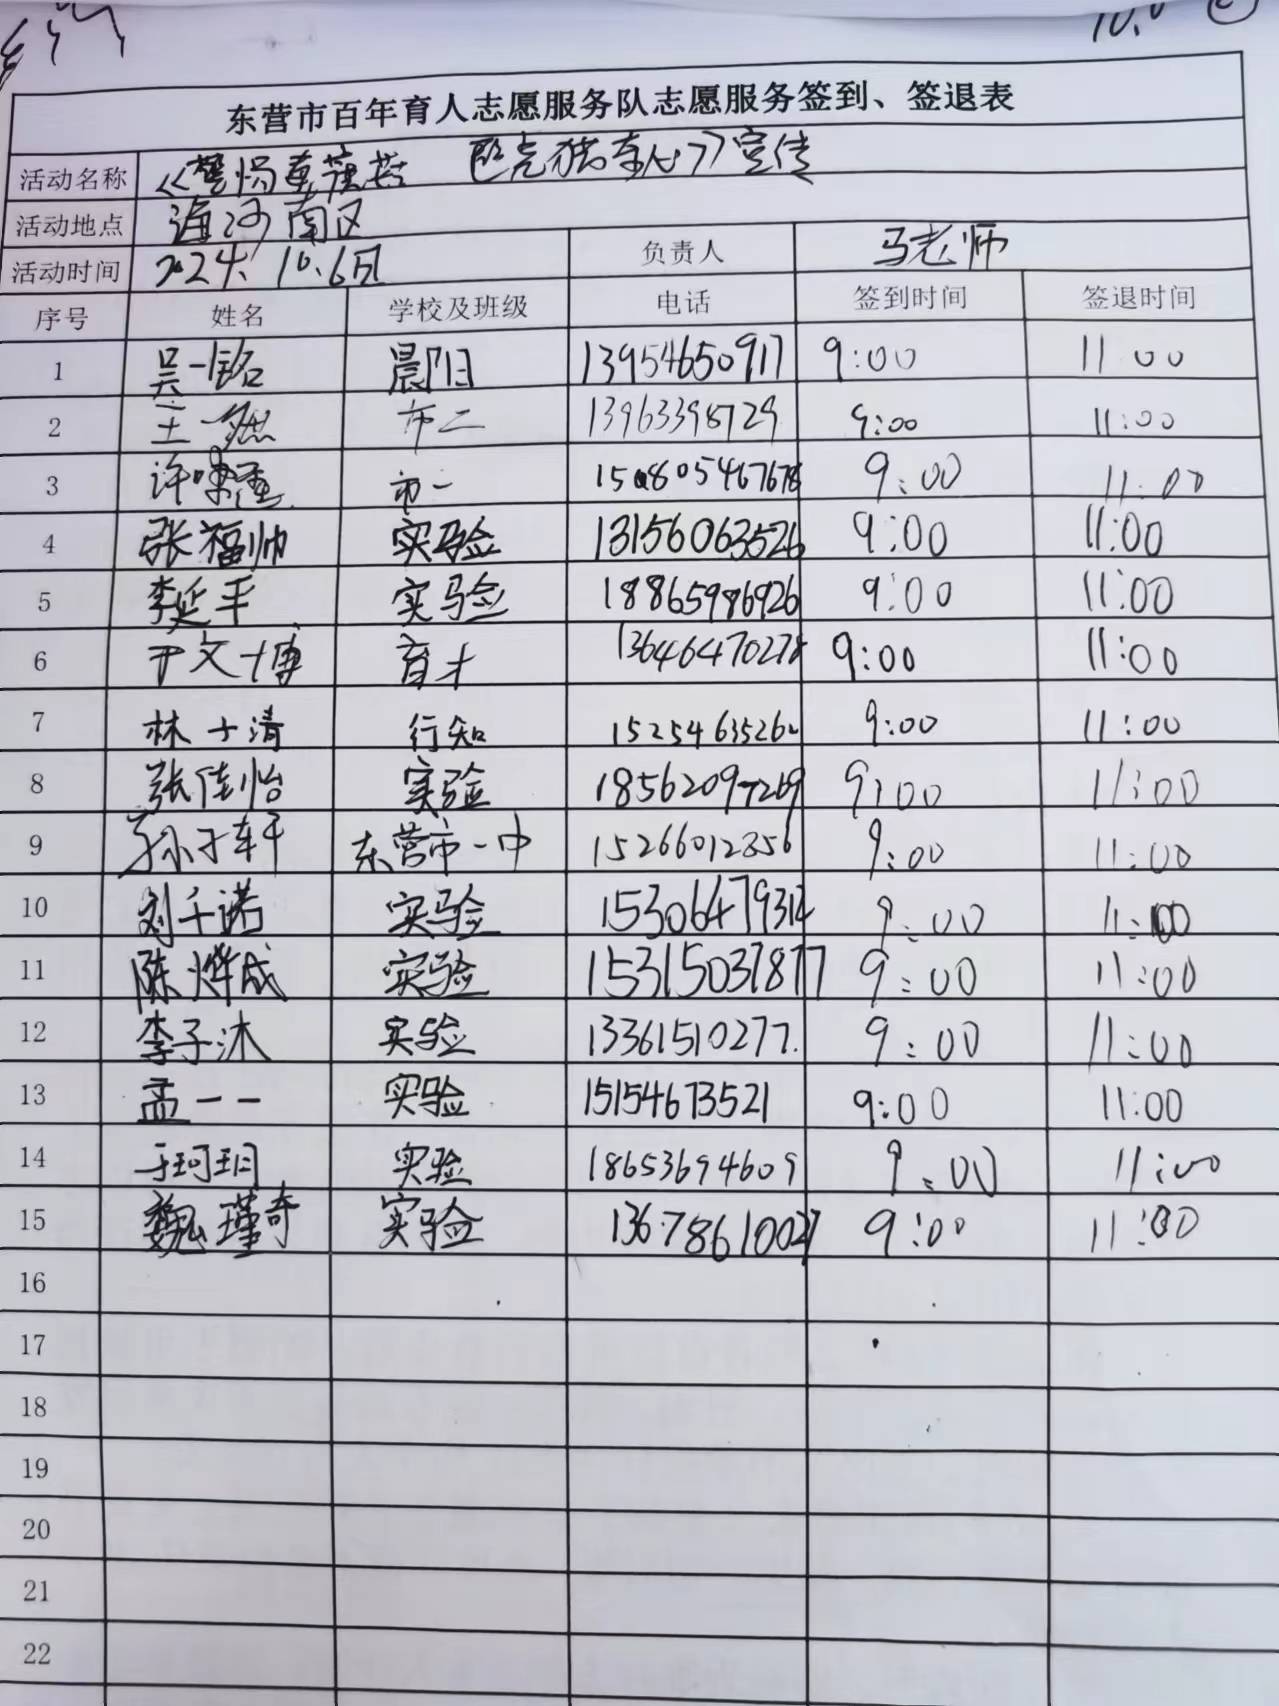 东营市百年育人志愿服务队志愿服务签到、签退表
活动名称 《警惕 宣传
活动地点 海河南区
活动时间 2024年10.6日 负责人 马老师
序号 姓名 学校及班级 电话 签到时间 签退时间
1 吴一铭 晨阳 13954650917 9:00 11:00
2 王一 市二 13963398729 9:00 11:00
3 许 市一 9:00 11:00
4 张福帅 实验 13156063526 9:00 11:00
5 李延平 实验 18865986926 9:00 11:00
6 于文博 育才 13646470278 9:00 11:00
7 林士清 行知 9:00 11:00
8 张佳怡 实验 18562097269 9:00 11:00
9 孙子轩 东营市一中 15266012856 9:00 11:00
10 刘千诺 实验 9:00 11:00
11 陈烨成 实验 15315037877 9:00 11:00
12 李子沐 实验 13361510277. 9:00 11:00
13 孟一一 实验 15154673521 9:00 11:00
14 于珂玥 实验 18653694609 9:00 11:00
15 魏瑾奇 实验 13678610027 9:00 11:00
16
17
18
19
20
21
22